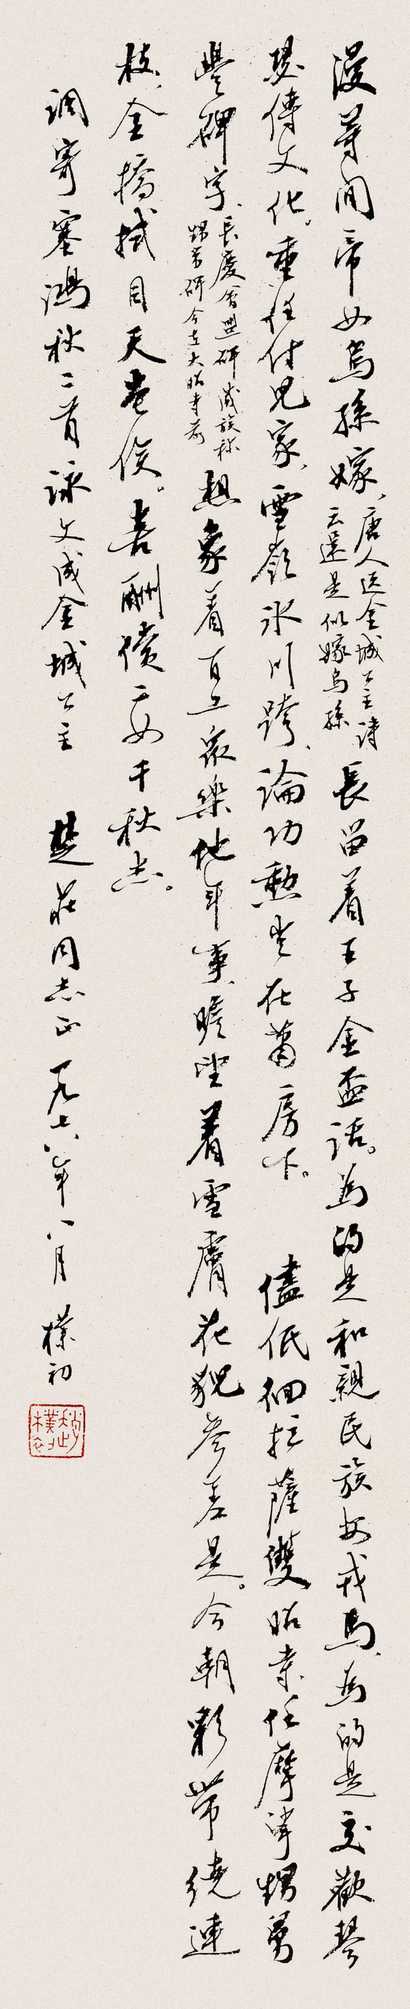 漫等閒帝女烏孫嫁、唐人送金城公主詩云還是似嫁烏孫長留着王子金盃話。為的是和親民族安戎馬、為的是交歡琴
瑟傳文化。重任付兒家、雪嶺冰川跨、論功勲豈在蕭房下。儘低徊拉薩雙昭寺任摩挲甥舅
豐碑字、長慶會盟碑藏族称甥舅碑今在大昭寺前想象着百工衆樂他年事、瞻望着雪膚花貌參差是。今朝彩帶繞連
枝、金橋拭目天俟。喜酬償二女千秋志。
調寄塞鴻秋二首詠文成金城公主 楚莊同志正 一九七八年八月 樸初
趙樸初